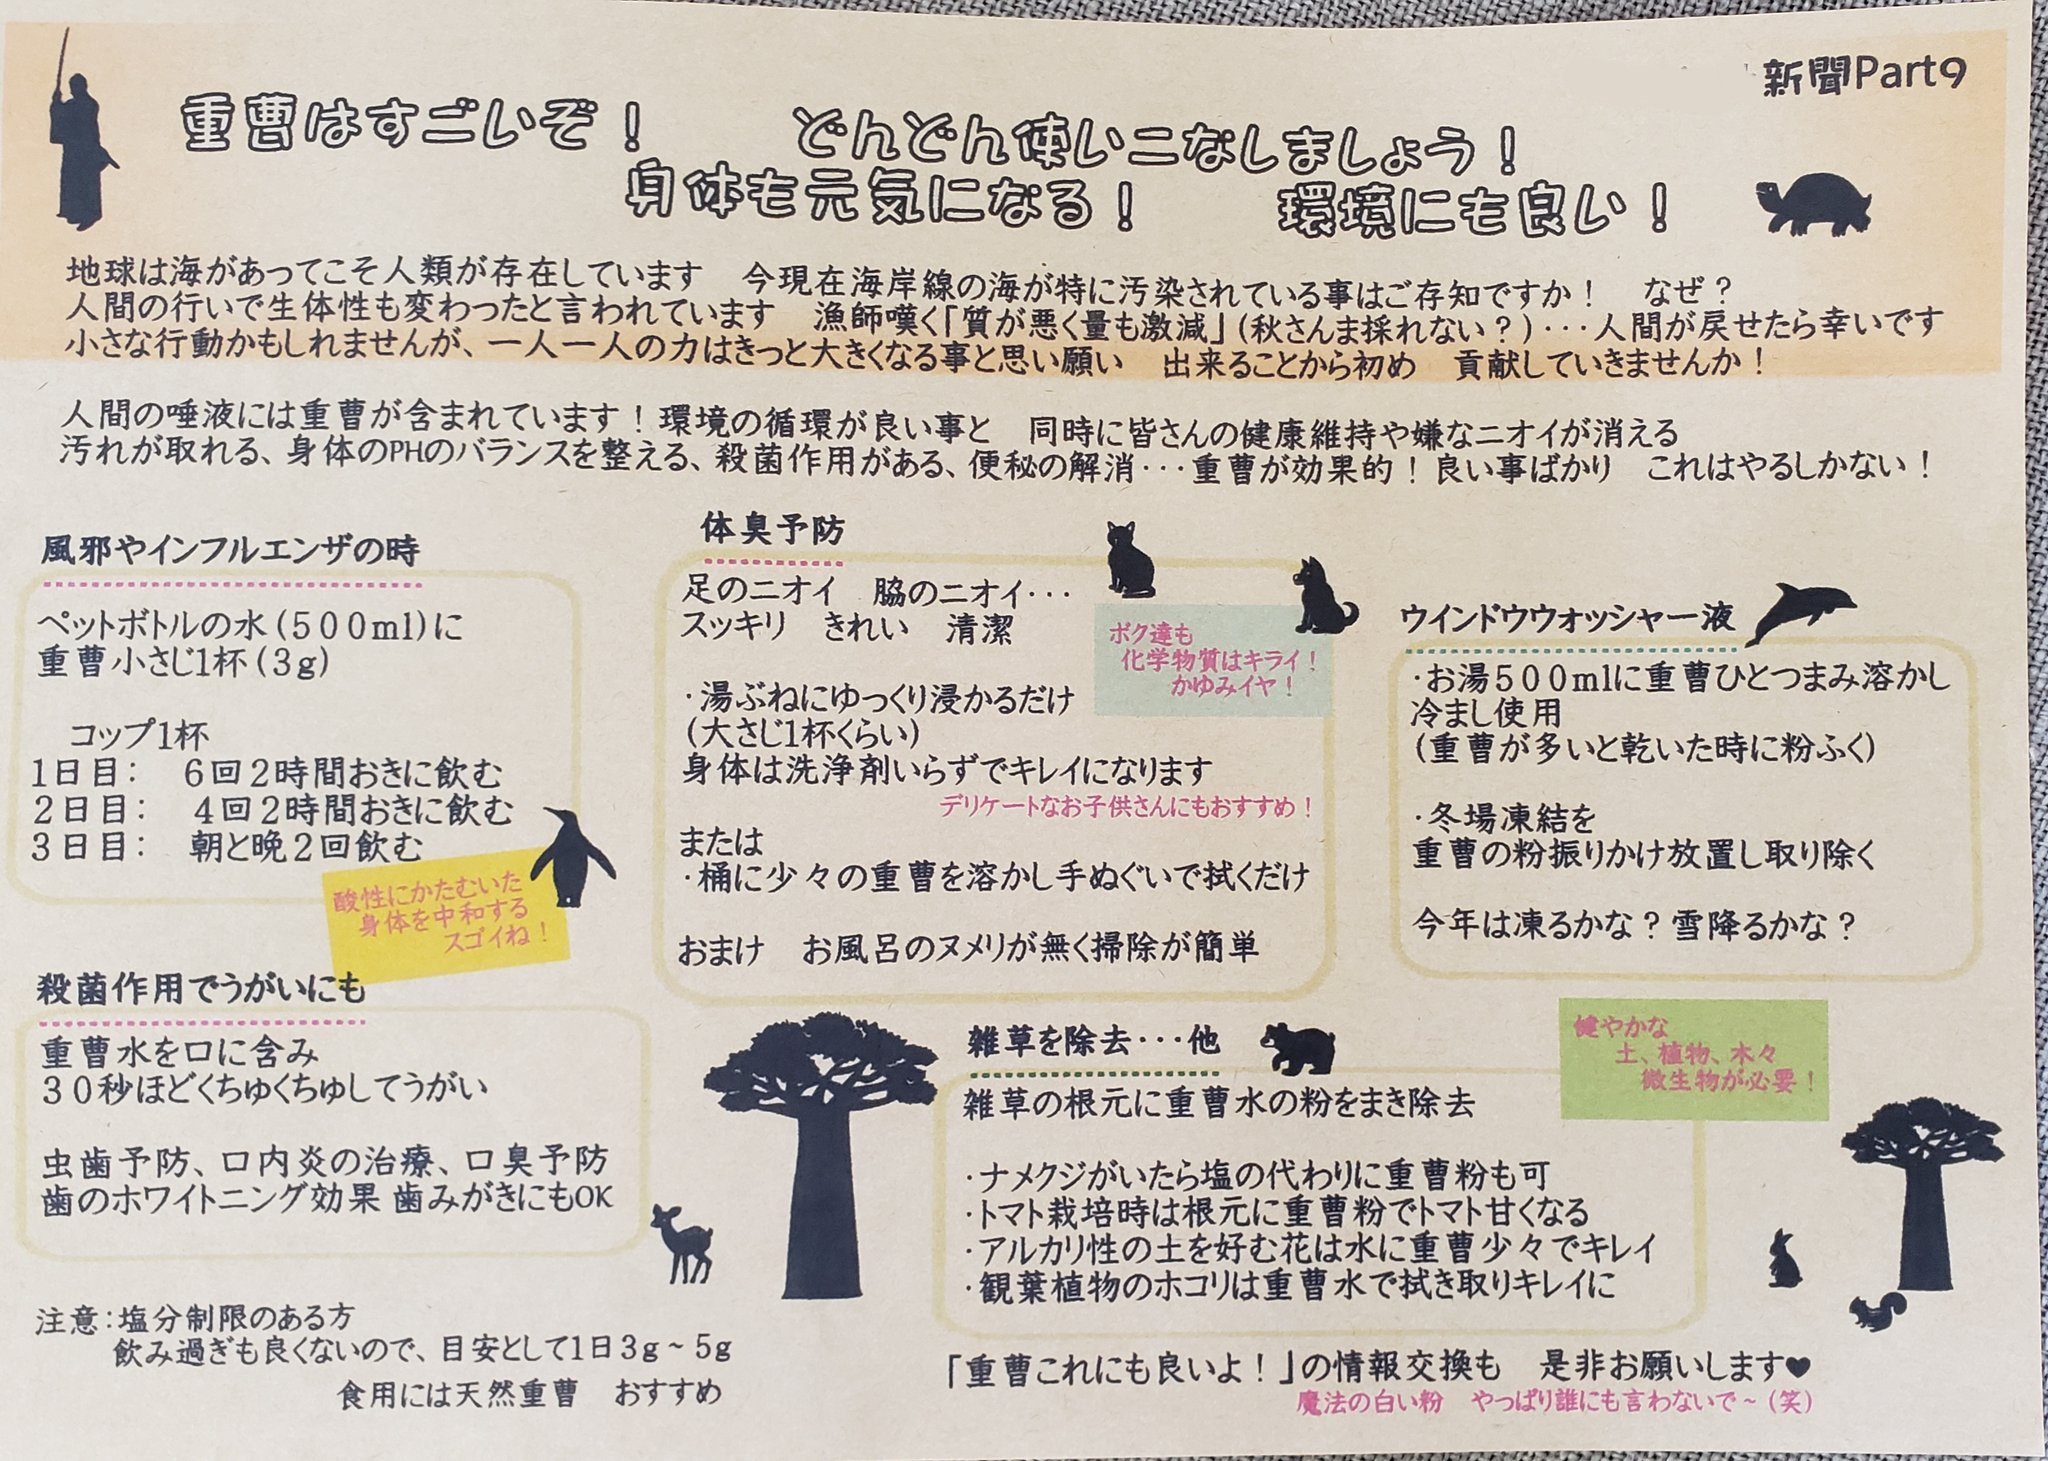 新聞Part9
重曹はすごいぞ！　どんどん使いこなしましょう！
身体も元気になる！　環境にも良い！
地球は海があってこそ人類が存在しています　今現在海岸線の海が特に汚染されている事はご存知ですか！　なぜ？
人間の行いで生体性も変わったと言われています　漁師嘆く「質が悪く量も激減」(秋さんま採れない？)・・・人間が戻せたら幸いです
小さな行動かもしれませんが、一人一人の力はきっと大きくなる事と思い願い　出来ることから初め　貢献していきませんか！
人間の唾液には重曹が含まれています！環境の循環が良い事と　同時に皆さんの健康維持や嫌なニオイが消える
汚れが取れる、身体のPHのバランスを整える、殺菌作用がある、便秘の解消・・・重曹が効果的！良い事ばかり　これはやるしかない！
風邪やインフルエンザの時
ペットボトルの水(500ml)に
重曹小さじ1杯(3g)
コップ1杯
1日目：　6回2時間おきに飲む
2日目：　4回2時間おきに飲む
3日目：　朝と晩2回飲む
酸性にかたむいた
身体を中和する
スゴイね！
殺菌作用でうがいにも
重曹水を口に含み
30秒ほどくちゅくちゅしてうがい
虫歯予防、口内炎の治療、口臭予防
歯のホワイトニング効果 歯みがきにもOK
注意：塩分制限のある方
飲み過ぎも良くないので、目安として1日3g～5g
食用には天然重曹　おすすめ
体臭予防
足のニオイ　脇のニオイ・・・
スッキリ　きれい　清潔
ボク達も
化学物質はキライ！
かゆみイヤ！
・湯ぶねにゆっくり浸かるだけ
(大さじ1杯くらい)
身体は洗浄剤いらずでキレイになります
デリケートなお子供さんにもおすすめ！
または
・桶に少々の重曹を溶かし手ぬぐいで拭くだけ
おまけ　お風呂のヌメリが無く掃除が簡単
ウインドウウォッシャー液
・お湯500mlに重曹ひとつまみ溶かし
冷まし使用
(重曹が多いと乾いた時に粉ふく)
・冬場凍結を
重曹の粉振りかけ放置し取り除く
今年は凍るかな？雪降るかな？
雑草を除去・・・他
健やかな
土、植物、木々
微生物が必要！
雑草の根元に重曹水の粉をまき除去
・ナメクジがいたら塩の代わりに重曹粉も可
・トマト栽培時は根元に重曹粉でトマト甘くなる
・アルカリ性の土を好む花は水に重曹少々でキレイ
・観葉植物のホコリは重曹水で拭き取りキレイに
「重曹これにも良いよ！」の情報交換も　是非お願いします♥
魔法の白い粉　やっぱり誰にも言わないで～(笑)